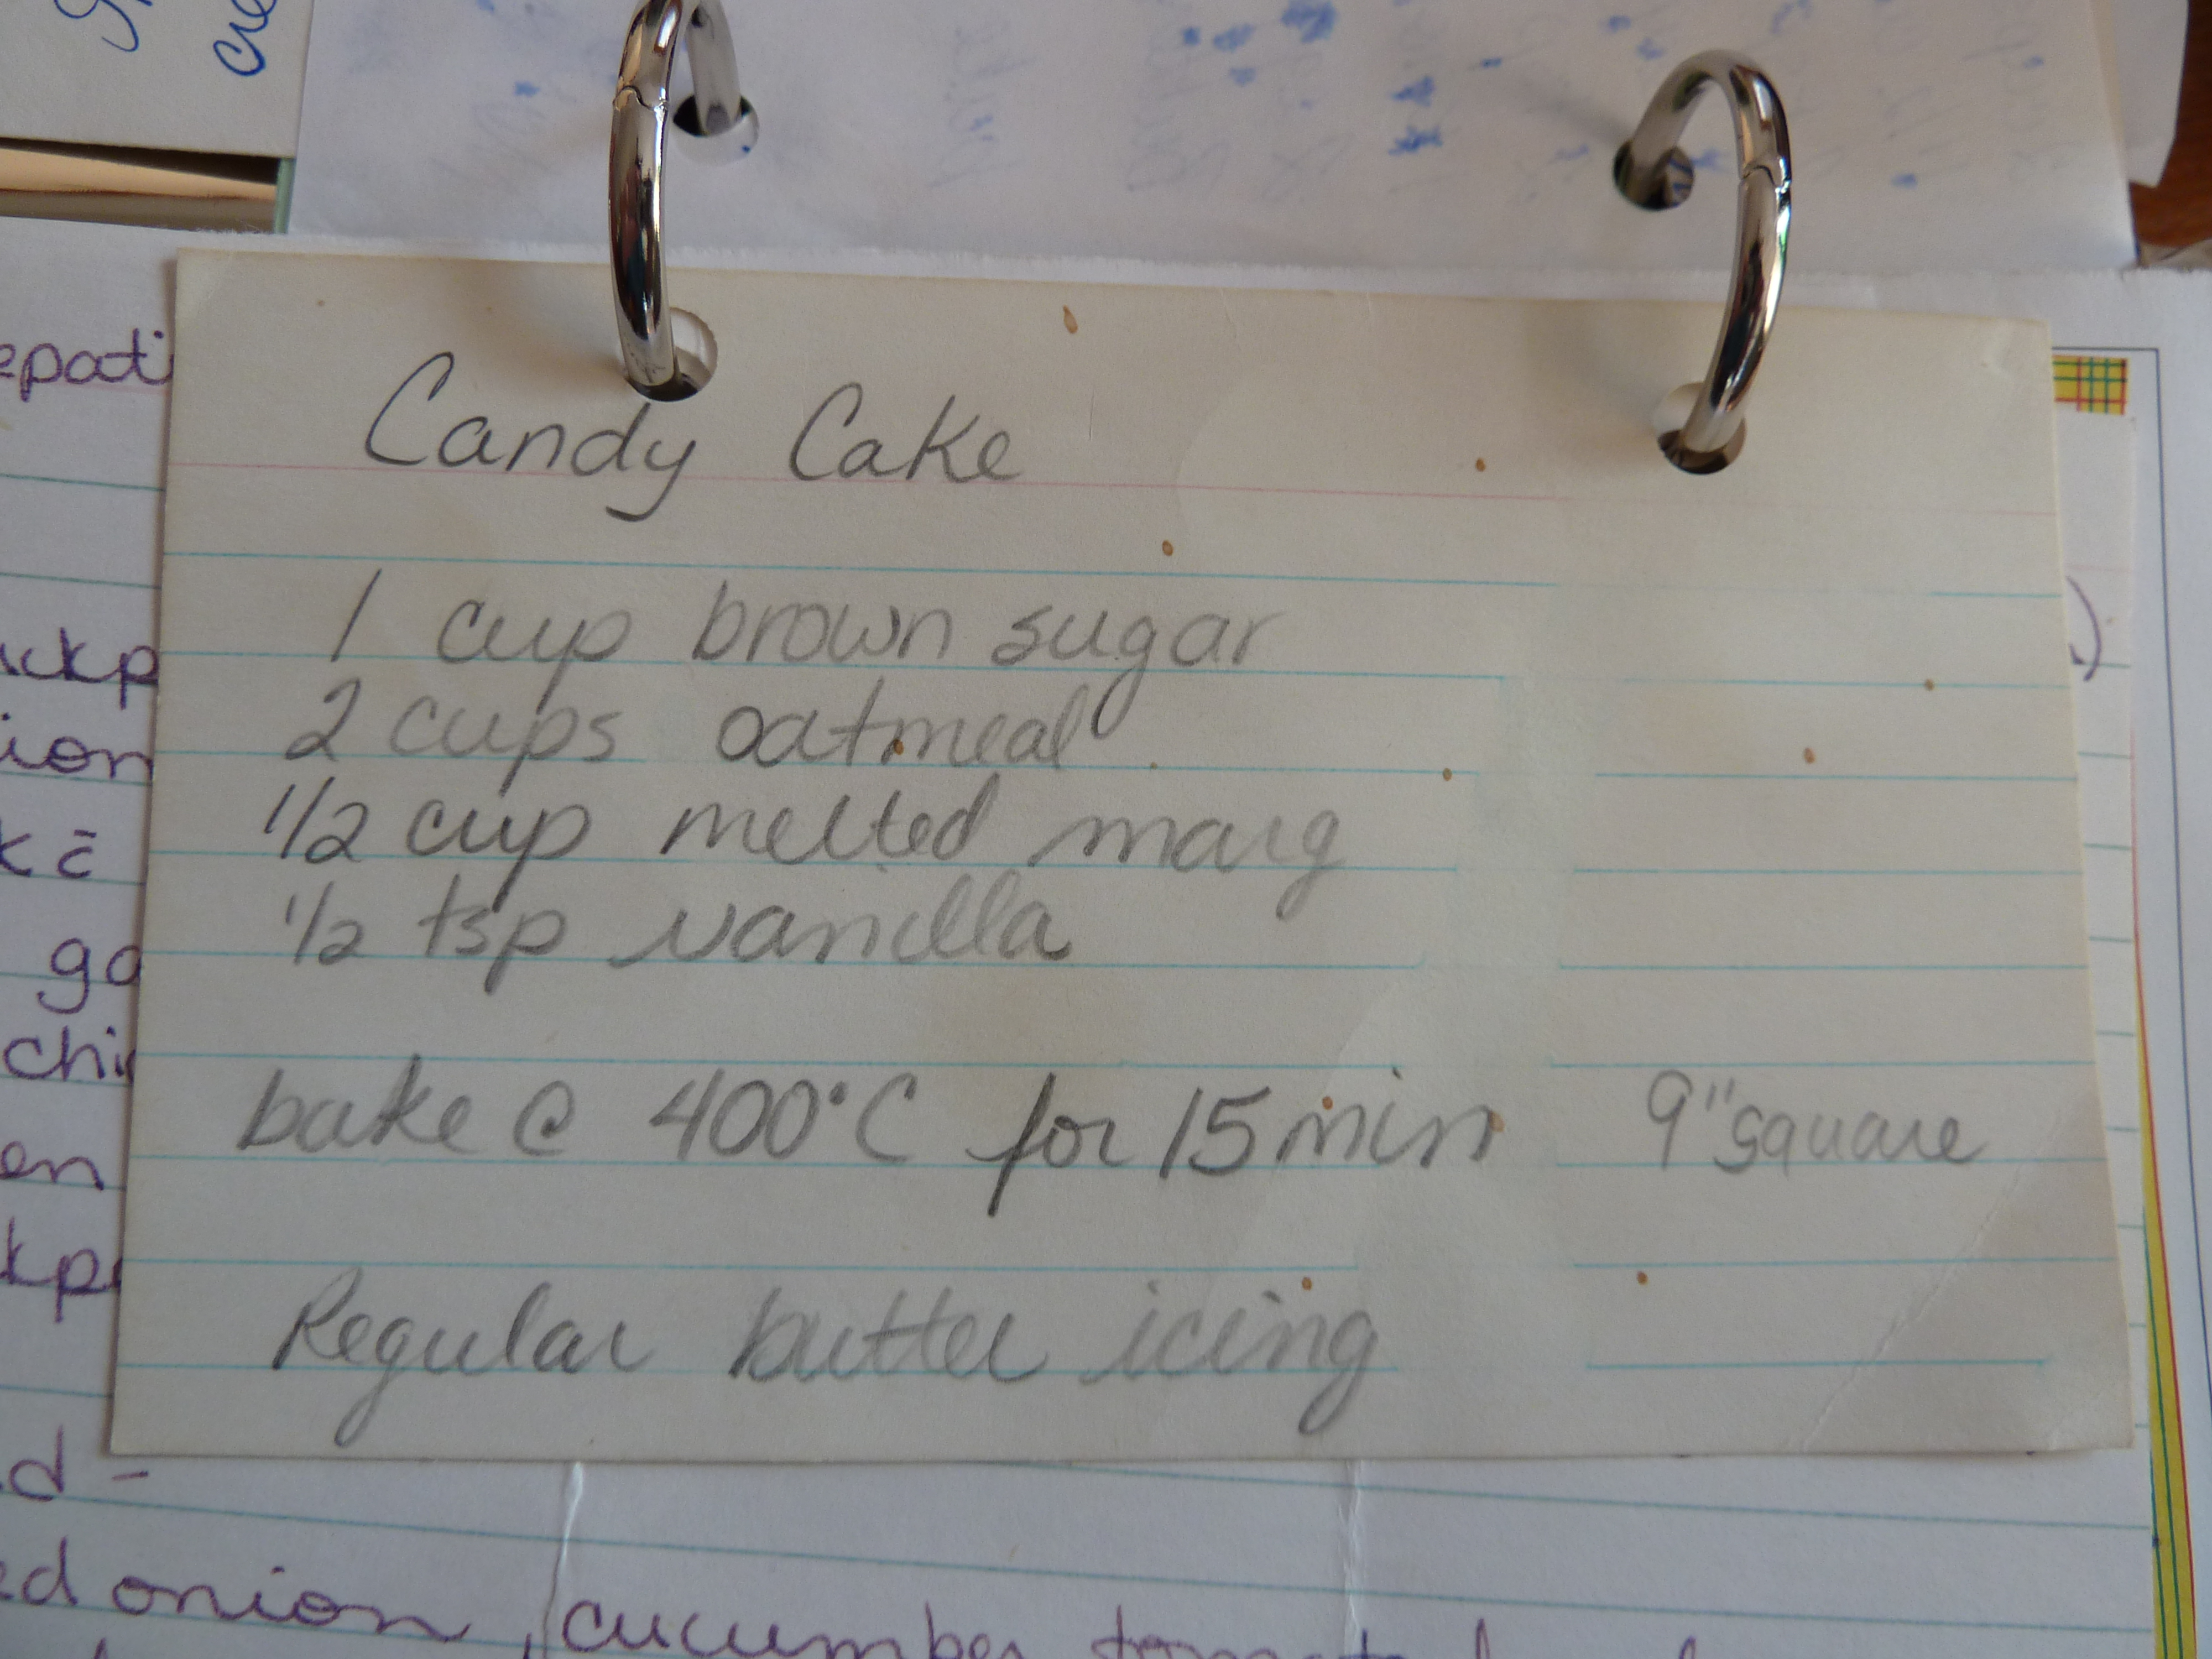 Candy Cake
1 cup brown sugar
2 cups oatmeal
1/2 cup melted marg
1/2 tsp vanilla
bake @ 400°C for 15 min 9" square
Regular butter icing
epati
ickp
ion
k c̄
ga
chi
en
kp
d -
ed onion, cucumber